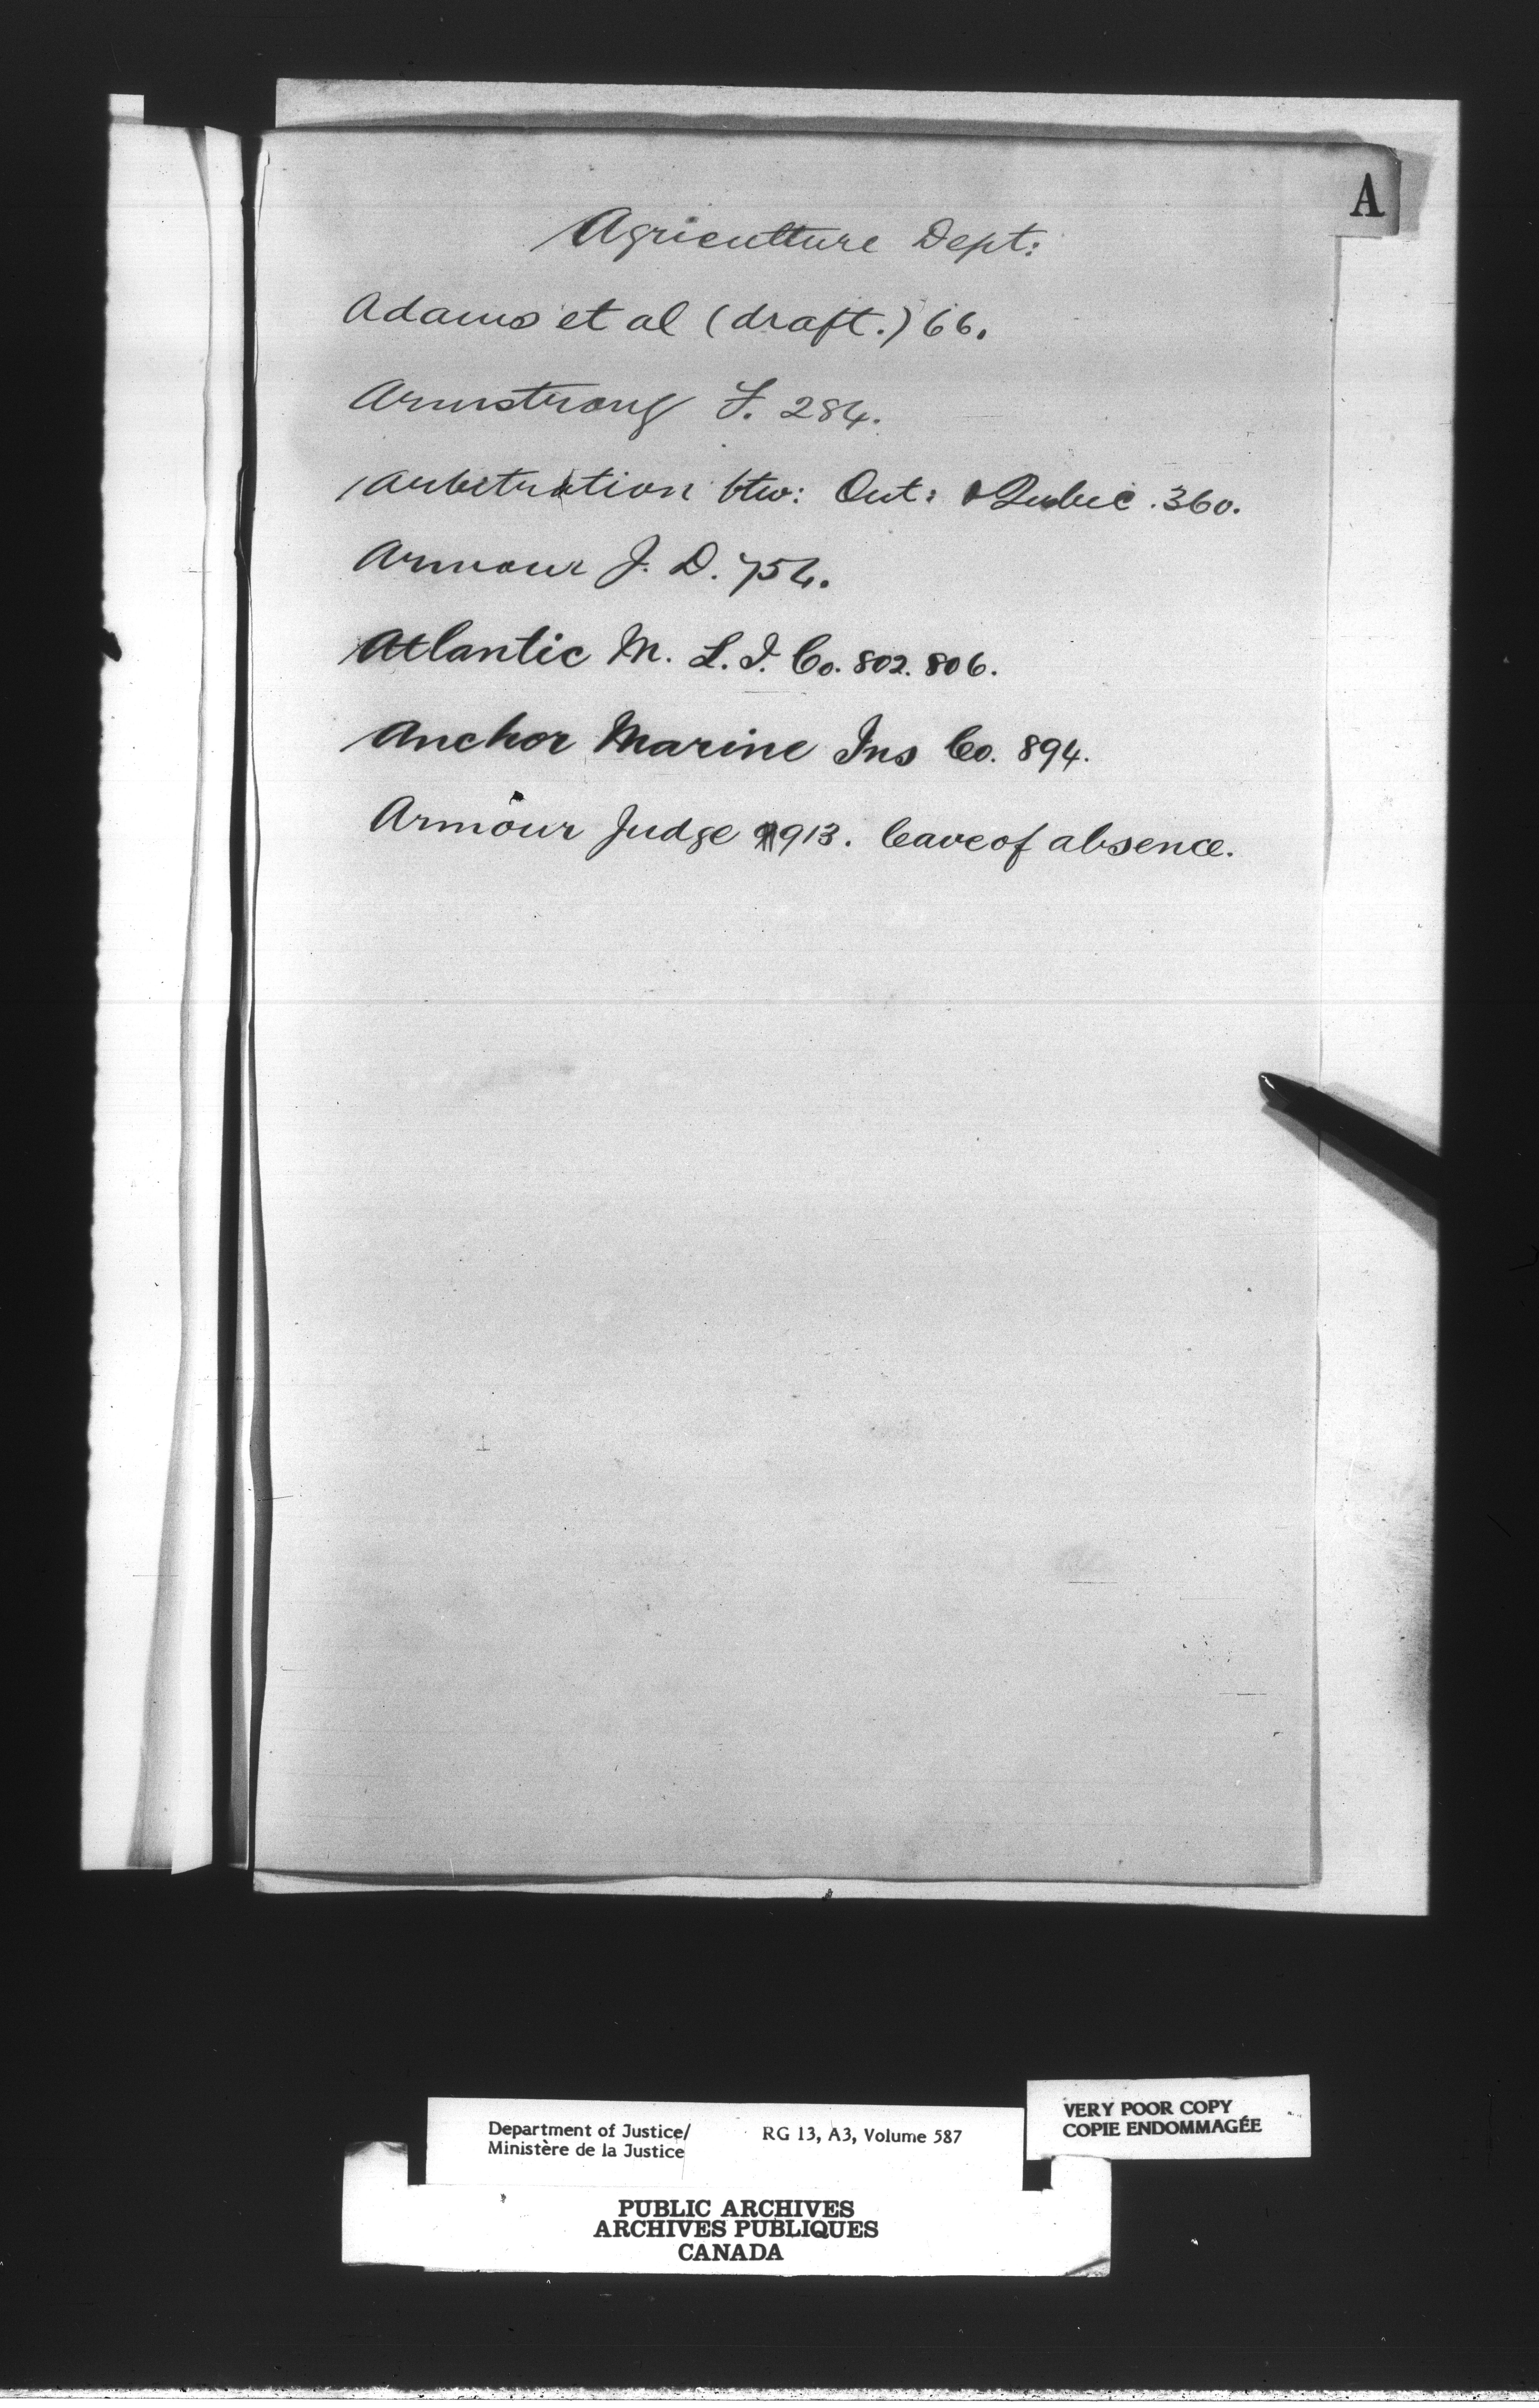 A
Agriculture Dept:
Adams et al (draft.) 66.
Armstrong F. 284.
Arbitration btw: Ont: & Quebec . 360.
Armour J. D. 754.
Atlantic M. L. I. Co. 802. 806.
Anchor Marine Ins Co. 894.
Armour Judge 913. leave of absence.
VERY POOR COPY
COPIE ENDOMMAGÉE
Department of Justice/ RG 13, A3, Volume 587
Ministère de la Justice
PUBLIC ARCHIVES
ARCHIVES PUBLIQUES
CANADA